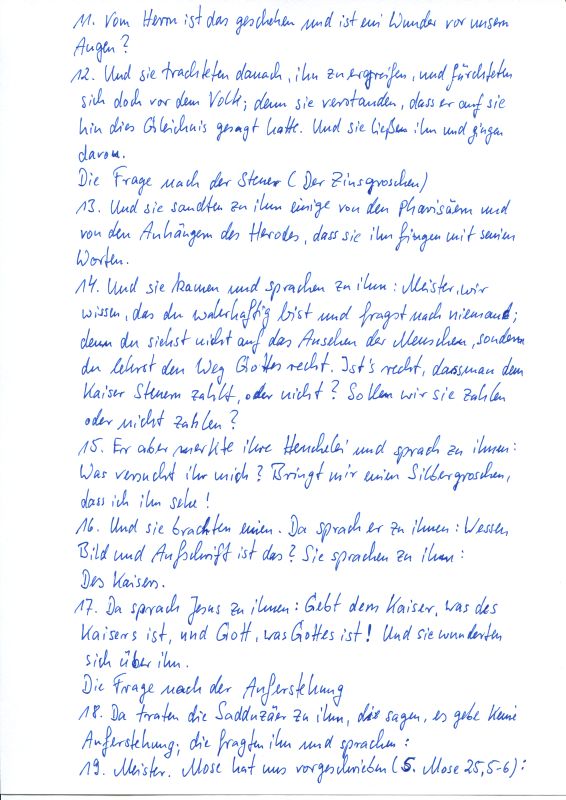 11. Vom Herrn ist das geschehen und ist ein Wunder vor unsern
Augen?
12. Und sie trachteten danach, ihn zu ergreifen, und fürchteten
sich doch vor dem Volk; denn sie verstanden, dass er auf sie
hin dies Gleichnis gesagt hatte. Und sie ließen ihn und gingen
davon.
Die Frage nach der Steuer (Der Zinsgroschen)
13. Und sie sandten zu ihm einige von den Pharisäern und
von den Anhängern des Herodes, dass sie ihn fingen mit seinen
Worten.
14. Und sie kamen und sprachen zu ihm: Meister, wir
wissen, das du wahrhaftig bist und fragst nach niemand;
denn du siehst nicht auf das Ansehen der Menschen, sondern
du lehrst den Weg Gottes recht. Ist's recht, dass man dem
Kaiser Steuern zahlt, oder nicht? Sollen wir sie zahlen
oder nicht zahlen?
15. Er aber merkte ihre Heuchelei und sprach zu ihnen:
Was versucht ihr mich? Bringt mir einen Silbergroschen,
dass ich ihn sehe!
16. Und sie brachten einen. Da sprach er zu ihnen: Wessen
Bild und Aufschrift ist das? Sie sprachen zu ihm:
Des Kaisers.
17. Da sprach Jesus zu ihnen: Gebt dem Kaiser, was des
Kaisers ist, und Gott, was Gottes ist! Und sie wunderten
sich über ihn.
Die Frage nach der Auferstehung
18. Da traten die Sadduzäer zu ihm, die sagen, es gebe keine
Auferstehung; die fragten ihn und sprachen:
19. Meister. Mose hat uns vorgeschrieben (5. Mose 25,5-6):